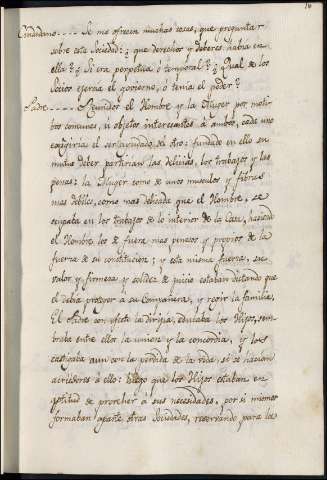 Ciudadano..... Se me ofrecen muchas cosas, que preguntar
sobre esta Sociedad: ¿que derechos y deberes havia en
ella? ¿Si era perpetua ò temporal? ¿Qual de los
Socios ejercia el govierno, ò tenia el poder?
Padre..... Reunidos el Hombre y la Muger por moti-
bos comunes, ù objetos interesantes à ambos, cada uno
exigiria el ser ayudado del otro: fundado en ello su
mutuo deber partirian las delicias, los trabajos y las
penas: la Muger como de unos musculos y fibras
mas debiles, como mas delicada que el Hombre, se
ocupaba en los trabajos de lo interior de la Casa, haciendo
el Hombre los de fuera mas penosos y propios de la
fuerza de su constitucion; y esta misma fuerza, su
valor, y firmeza y solidez de juicio estaban dictando que
el debia proteger a su Compañera, y regir la familia.
El Padre con efecto la dirigia, educaba los Hijos, sem-
braba entre ellos la union y la concordia, y los
castigaba aun con la perdida de la vida, si se hacian
acrehedores à ello: luego que los Hijos estaban en
aptitud de proveher à sus necesidades, por si mismos
formaban aparte otras Sociedades, reservando para los